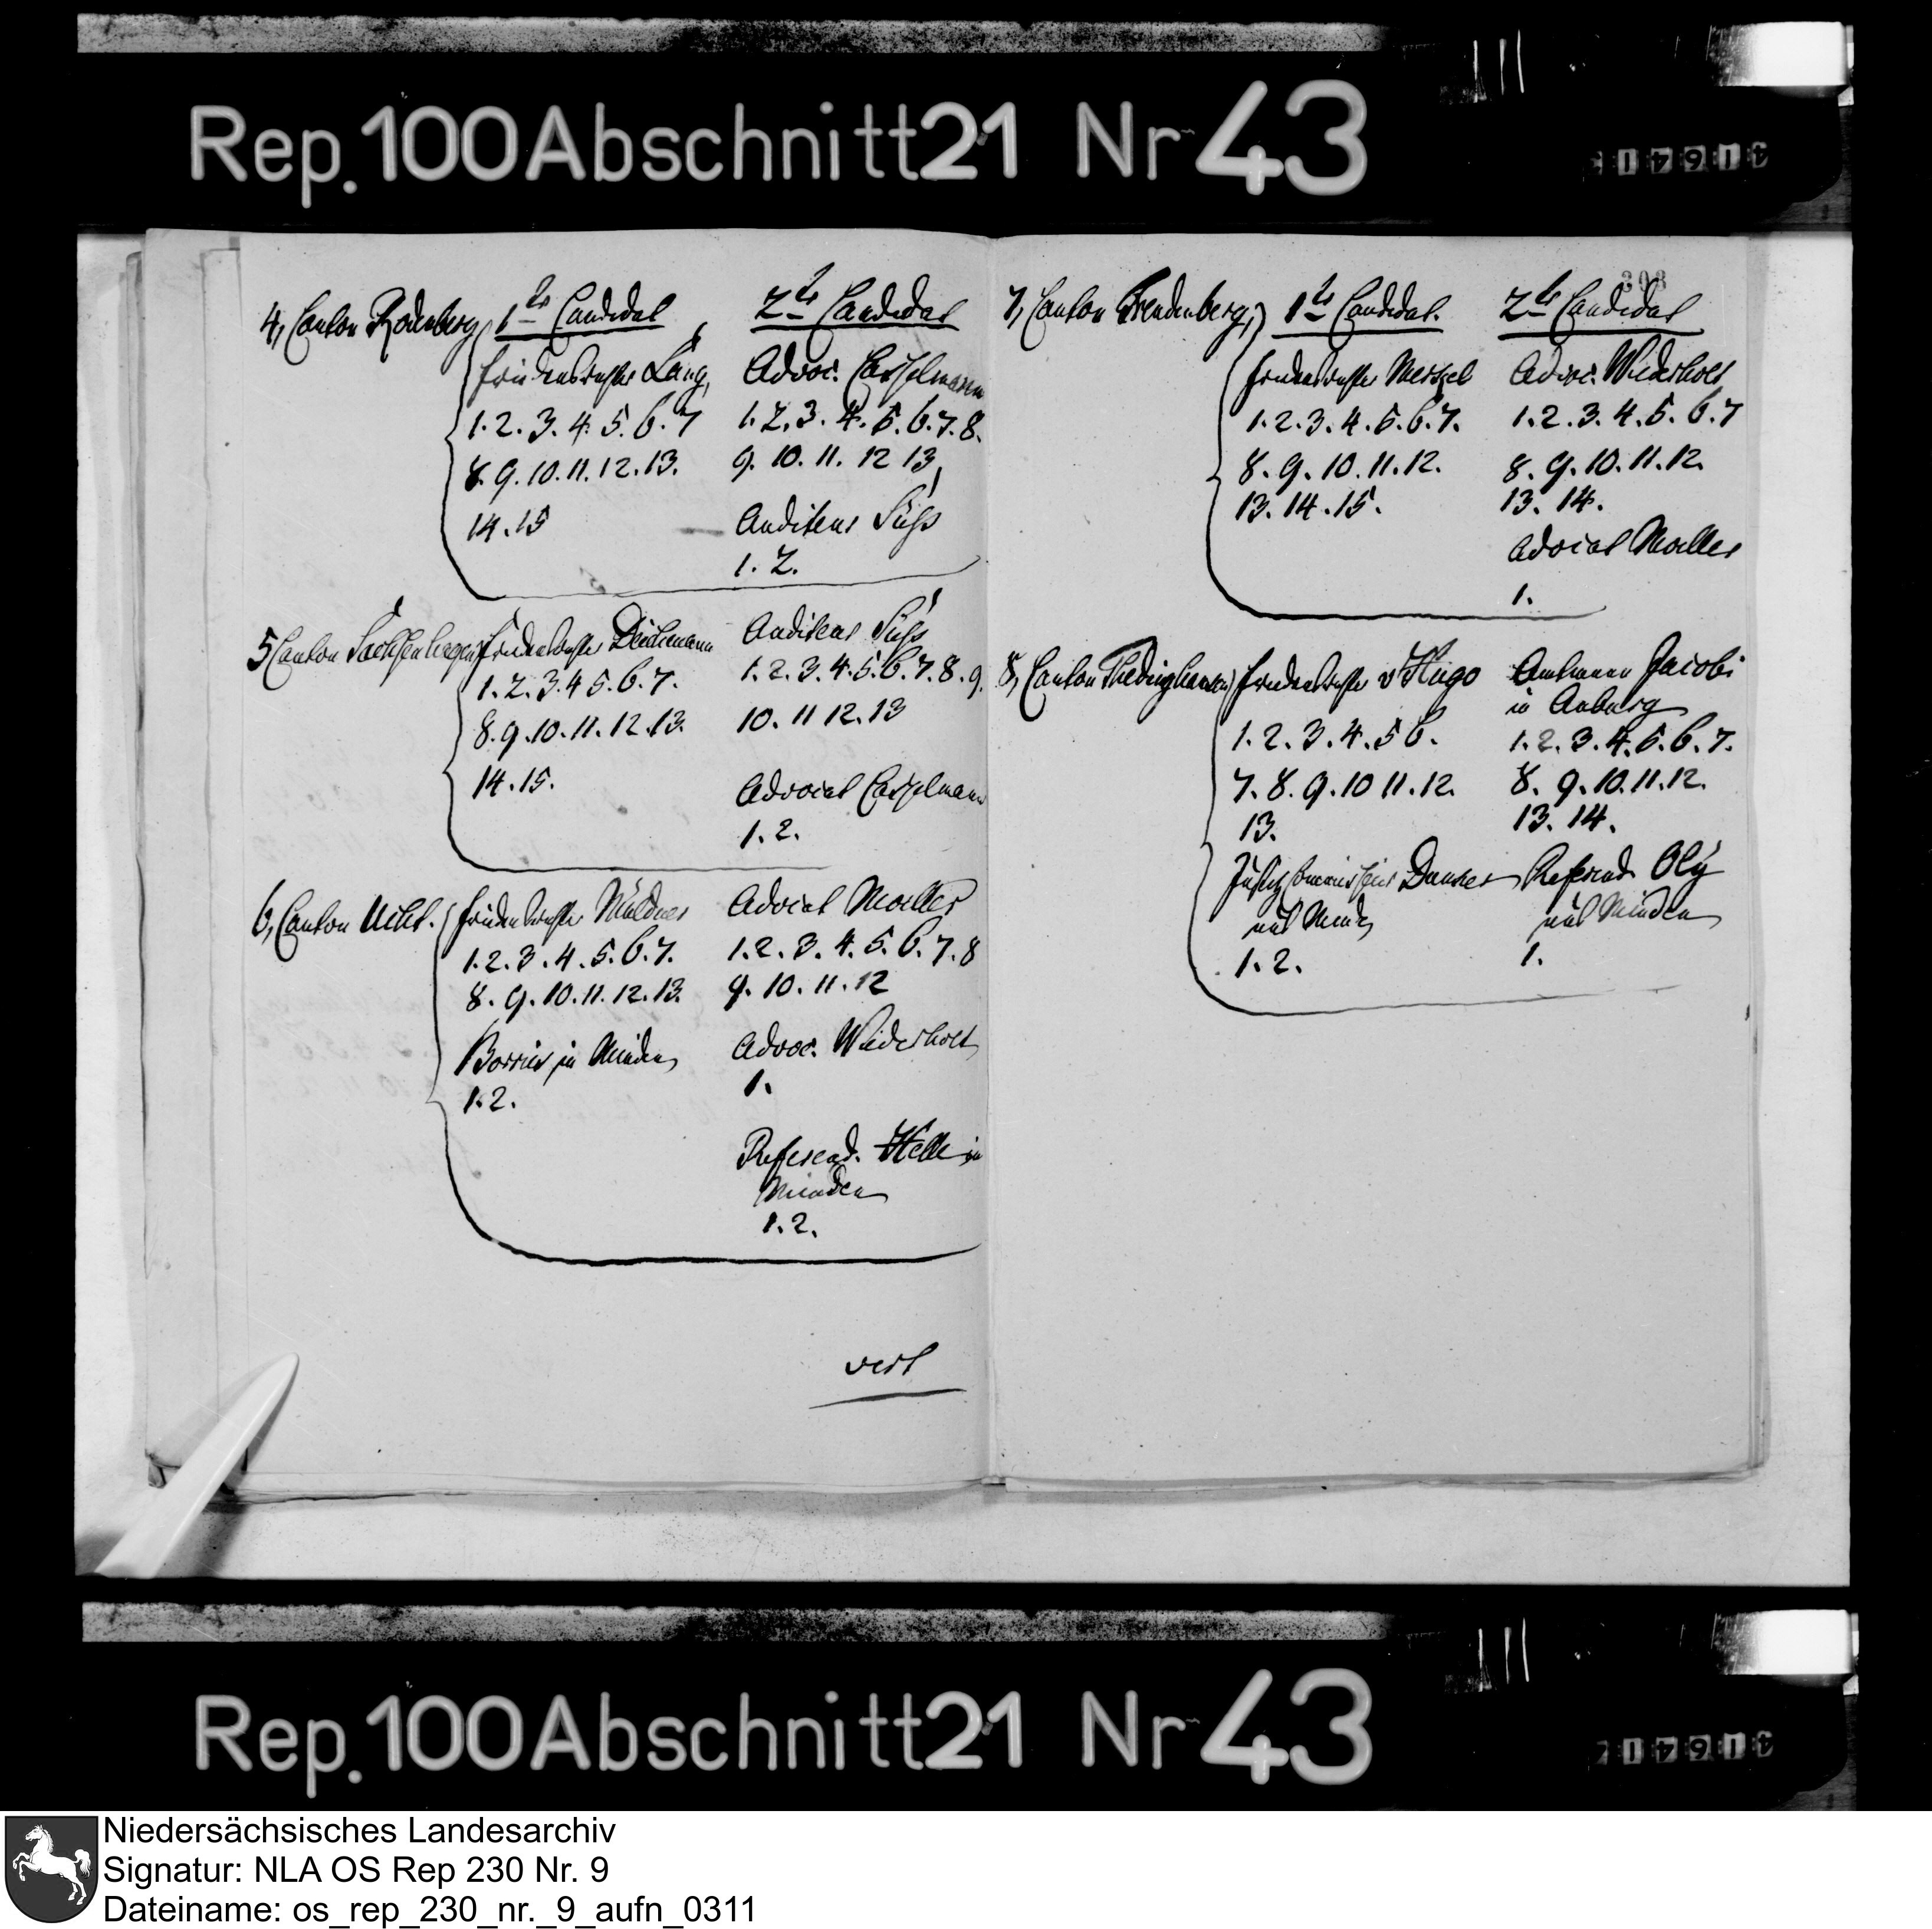 Rep. 100 Abschnitt 21 Nr 43
303
4, Canton Rodenberg, 1te Candidat 2te Candidat
Friedensrichter Lang, Advoc. Casselmann
1. 2. 3. 4. 5. 6. 7 1. 2. 3. 4. 5. 6. 7. 8.
8. 9. 10. 11. 12. 13. 9. 10. 11. 12 13
14. 15 Auditeur Süß
1. 2.
5 Canton Sachsenhagen Friedensrichter Deichmann Auditeur Süß
1. 2. 3. 4 5. 6. 7. 1. 2. 3. 4. 5. 6. 7. 8. 9.
8. 9. 10. 11. 12. 13. 10. 11 12. 13
14. 15. Advocat Casselmann
1. 2.
6, Canton Ucht. Friedensrichter Müldner Advocat Moeller
1. 2. 3. 4. 5. 6. 7. 1. 2. 3. 4. 5. 6. 7. 8
8. 9. 10. 11. 12. 13. 9. 10. 11. 12
Borries in Minden Advoc. Wiederholt
1. 2. 1.
Referend. Helle in
Minden
1. 2.
vert
7, Canton Freudenberg, 1te Candidat. 2te Candidat
Friedensrichter Mertzel Advoc. Wiederholt
1. 2. 3. 4. 5. 6. 7. 1. 2. 3. 4. 5. 6. 7
8. 9. 10. 11. 12. 8. 9. 10. 11. 12.
13. 14. 15. 13. 14.
Advocat Moeller
1.
8, Canton Thedinghausen Friedensrichter v Hugo Amtmann Jacobi
in Auburg
1. 2. 3. 4. 5 6. 1. 2. 3. 4. 5. 6. 7.
7. 8. 9. 10 11. 12. 8. 9. 10. 11. 12.
13. 13. 14.
Justizcommissair Referend. Oly
Minden
1. 2. 1.
Rep. 100 Abschnitt 21 Nr 43
Niedersächsisches Landesarchiv
Signatur: NLA OS Rep 230 Nr. 9
Dateiname: os_rep_230_nr._9_aufn_0311